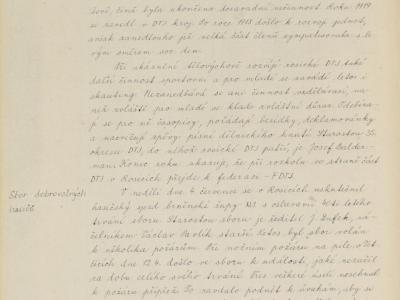 šově, čímž byla ukončena dosavadní nečinnost. Roku 1919
se zavedl v DTJ kroj. Do roce 1918 došlo k rozvoji jednot,
avšak zanedlouho již velká část členů sympatisovala s le-
vým směrem soc. dem.
Při okázalém tělovýchově rozvíjí rosická DTJ také
další činnost sportovní a pro mládež se zavádí letos i
skauting. Nezanedbává se ani činnost vzdělávací, na-
níž zvláště pro mládež se klade zvláštní důraz. Odebíra-
jí se pro ně časopisy, pořádají besídky, deklamovánky
a nacvičují zpěvy písní dělnických
okresu DTJ, do něhož rosická DTJ patří, je Josef
man. Konec roku ukazuje, že při rozkolu ve straně část
DTJ v Rosicích přejde k federaci - FDTJ.
Sbor dobrovolných
hasičů.
V neděli dne 4. července se v Rosicích uskutečnil
hasičský sjezd brněnské župy s oslavami letého
trvání sboru. Starostou sboru je ředitel J. Dufek, ná-
čelníkem Václav Malík starší. Letos byl sbor volán
k několika požárům. Při nočním požáru na pile v Te-
ticích dne 12.4. došlo ve sboru k události, jaké nezažil
za dobu celého svého trvání. Přes veškeré úsilí nesehnal
k požáru přípřeže. To zavdalo podnět k úvahám, aby se